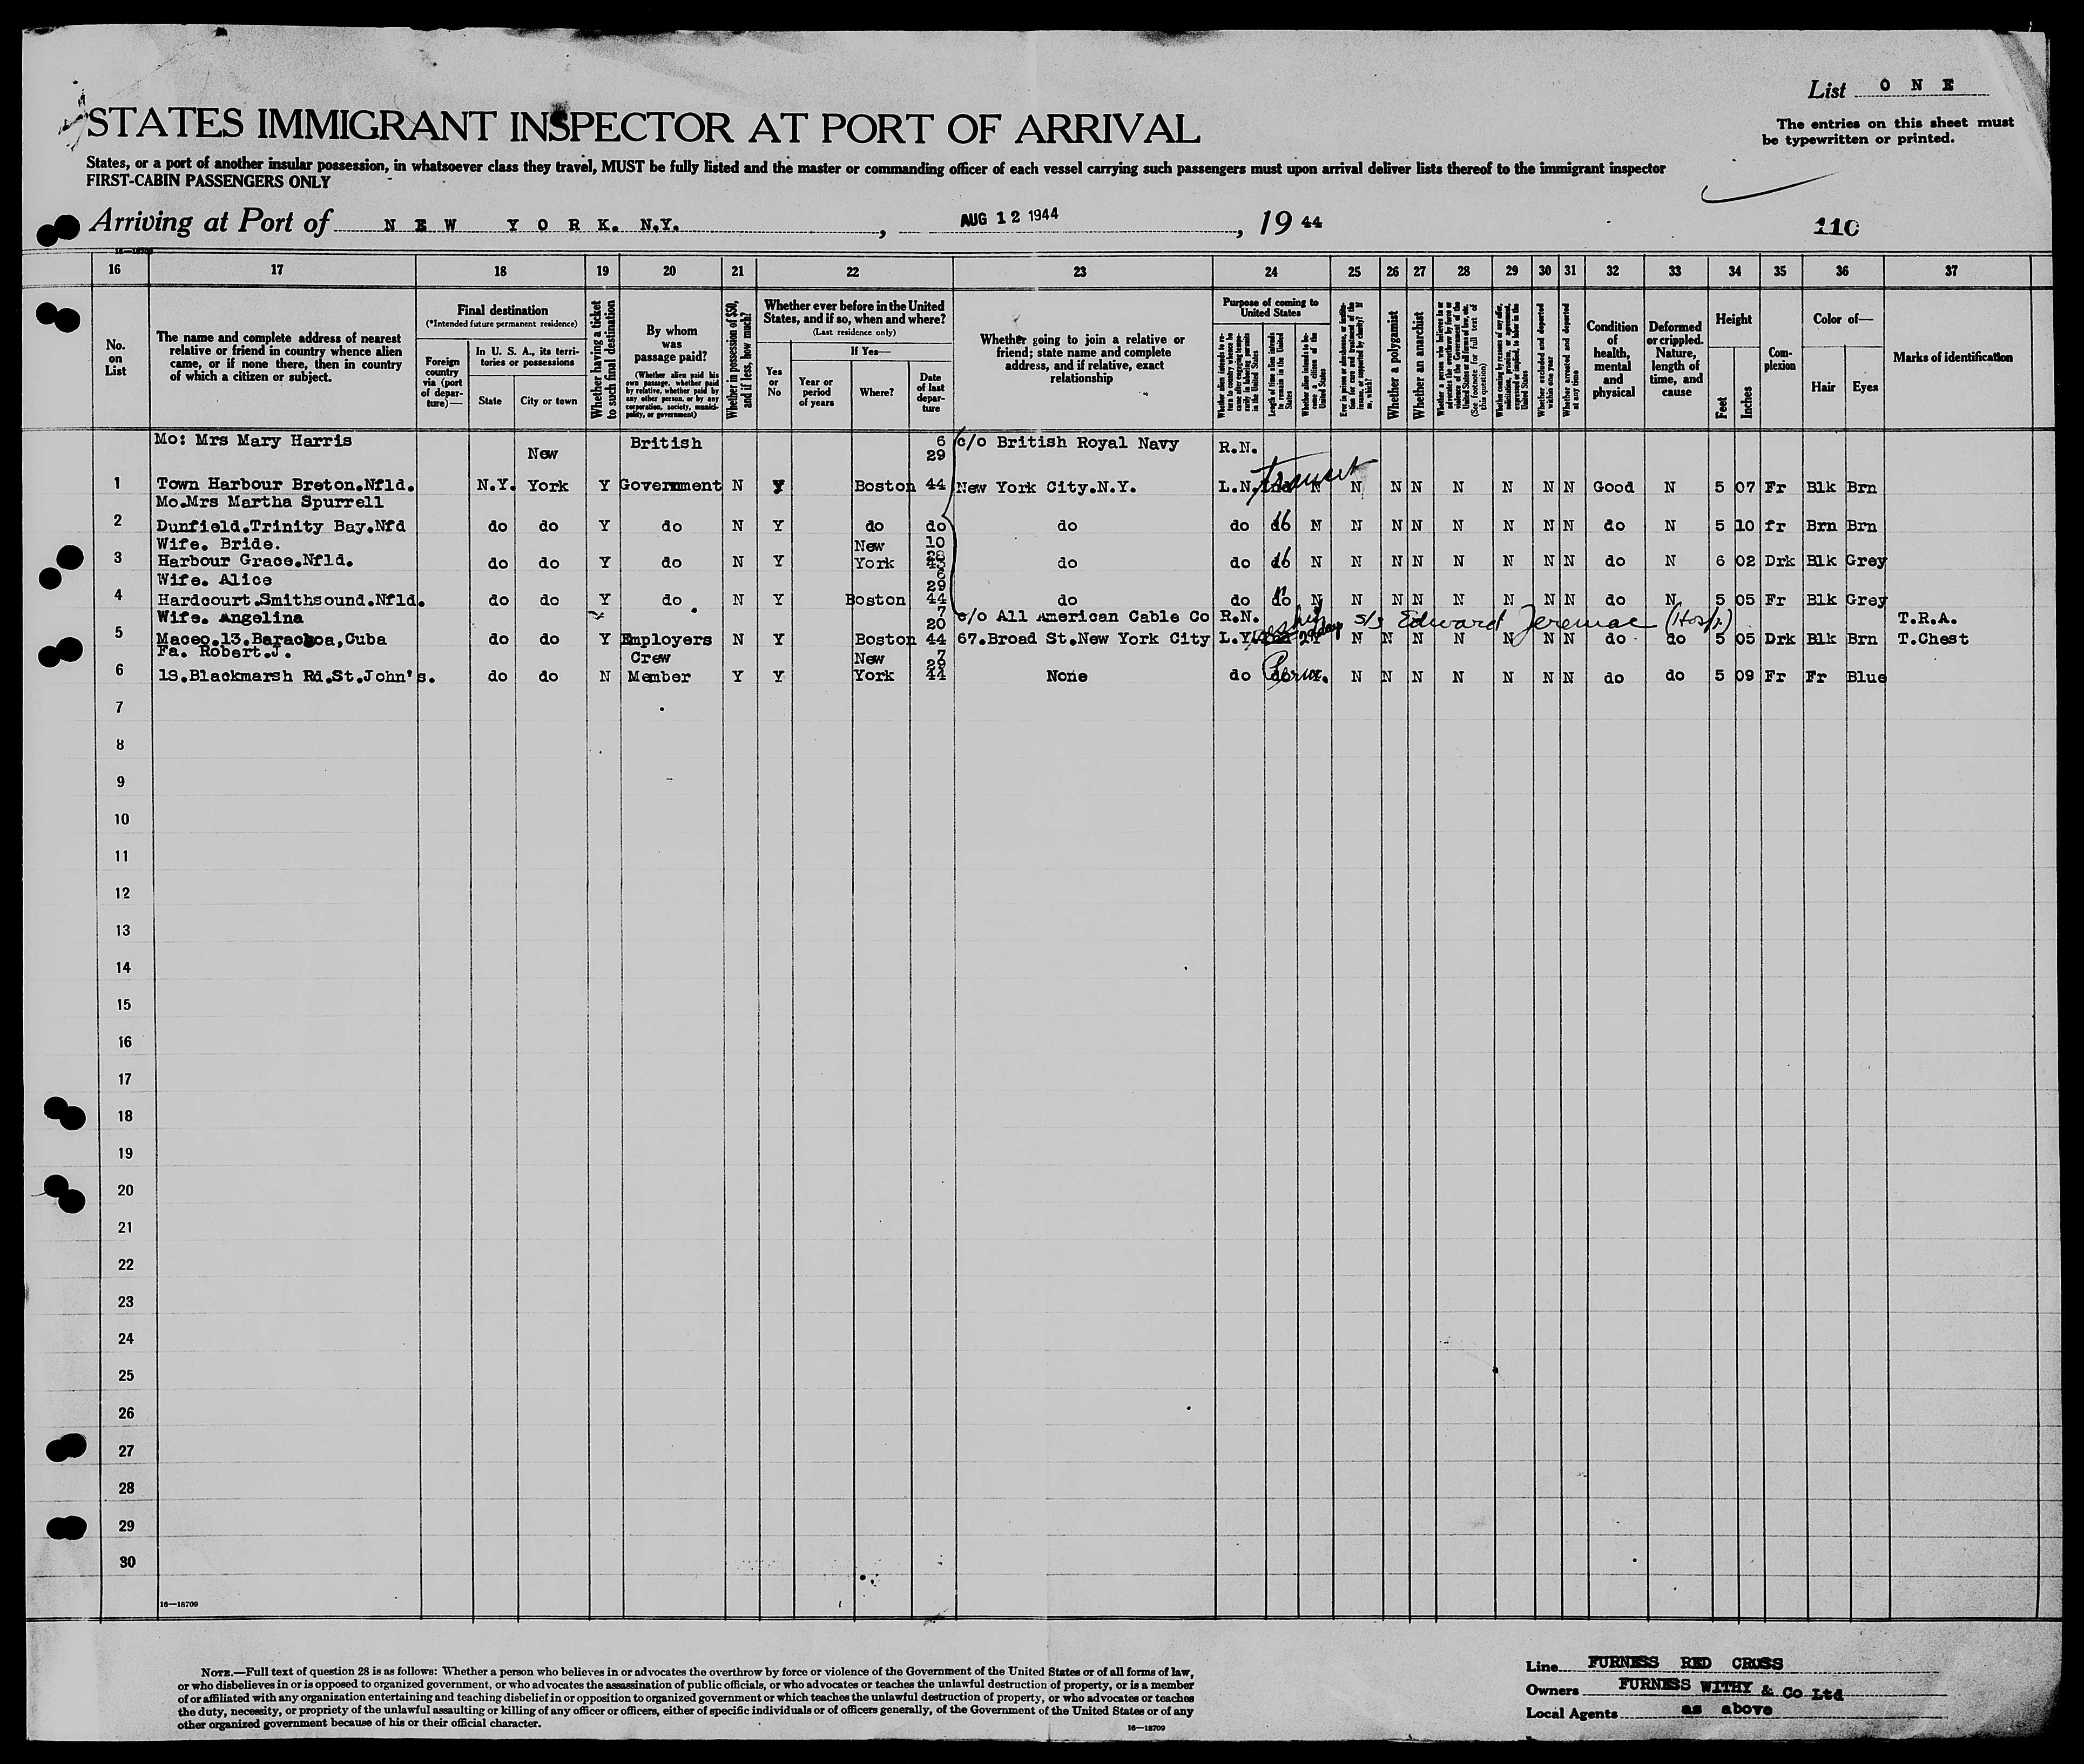 List O N E
STATES IMMIGRANT INSPECTOR AT PORT OF ARRIVAL
The entries on this sheet must
be typewritten or printed.
States, or a port of another insular possession, in whatsoever class they travel, MUST be fully listed and the master or commanding officer of each vessel carrying such passengers must upon arrival deliver lists thereof to the immigrant inspector
FIRST-CABIN PASSENGERS ONLY
Arriving at Port of N E W Y O R K. N.Y. , AUG 12 1944 , 19 44
110
16 17 18 19 20 21 22 23 24 25 26 27 28 29 30 31 32 33 34 35 36 37
No. on List
The name and complete address of nearest relative or friend in country whence alien came, or if none there, then in country of which a citizen or subject.
Final destination
(*Intended future permanent residence)
Foreign country via (port of departure)—
In U. S. A., its territories or possessions
State
City or town
Whether having a ticket to such final destination
By whom was passage paid?
(Whether alien paid his own passage, whether paid by relative, whether paid by any other person, or by any corporation, society, municipality, or government)
Whether in possession of $50, and if less, how much?
Whether ever before in the United States, and if so, when and where?
(Last residence only)
Yes or No
If Yes—
Year or period of years
Where?
Date of last departure
Whether going to join a relative or friend; state name and complete address, and if relative, exact relationship
Purpose of coming to United States
Length of time alien intends to remain in the United States
Whether a polygamist
Whether an anarchist
Whether excluded and deported within one year
Whether arrested and deported at any time
Condition of health, mental and physical
Deformed or crippled. Nature, length of time, and cause
Height
Feet
Inches
Complexion
Color of—
Hair
Eyes
Marks of identification
Mo: Mrs Mary Harris New British 6 29 c/o British Royal Navy R.N.
1 Town Harbour Breton.Nfld. N.Y. York Y Government N Y Boston 44 New York City.N.Y. L.N. transit N N N N N N N N Good N 5 07 Fr Blk Brn
Mo.Mrs Martha Spurrell
2 Dunfield.Trinity Bay.Nfd do do Y do N Y do do do do do N N N N N N N N do N 5 10 fr Brn Brn
Wife. Bride. New 10 28
3 Harbour Grace.Nfld. do do Y do N Y York 43 do do do N N N N N N N N do N 6 02 Drk Blk Grey
Wife. Alice 29
4 Hardcourt.Smithsound.Nfld. do do Y do N Y Boston 44 do do do N N N N N N N N do N 5 05 Fr Blk Grey
Wife. Angelina 7 20 c/o All American Cable Co R.N. s/s Edward (Hosp.) T.R.A.
5 Maceo.13.Barachoa,Cuba do do Y Employers N Y Boston 44 67.Broad St.New York City L.Y. 29 days N N N N N N N do do 5 05 Drk Blk Brn T.Chest
Fa. Robert.J. Crew New 7 26
6 13.Blackmarsh Rd.St.John's. do do N Member Y Y York 44 None do do N N N N N N N do do 5 09 Fr Fr Blue
7
8
9
10
11
12
13
14
15
16
17
18
19
20
21
22
23
24
25
26
27
28
29
30
16—18709
NOTE.—Full text of question 28 is as follows: Whether a person who believes in or advocates the overthrow by force or violence of the Government of the United States or of all forms of law,
or who disbelieves in or is opposed to organized government, or who advocates the assassination of public officials, or who advocates or teaches the unlawful destruction of property, or is a member
of or affiliated with any organization entertaining and teaching disbelief in or opposition to organized government or which teaches the unlawful destruction of property, or who advocates or teaches
the duty, necessity, or propriety of the unlawful assaulting or killing of any officer or officers, either of specific individuals or of officers generally, of the Government of the United States or of any
other organized government because of his or their official character.
16—18709
Line FURNESS RED CROSS
Owners FURNESS WITHY & Co Ltd
Local Agents as above